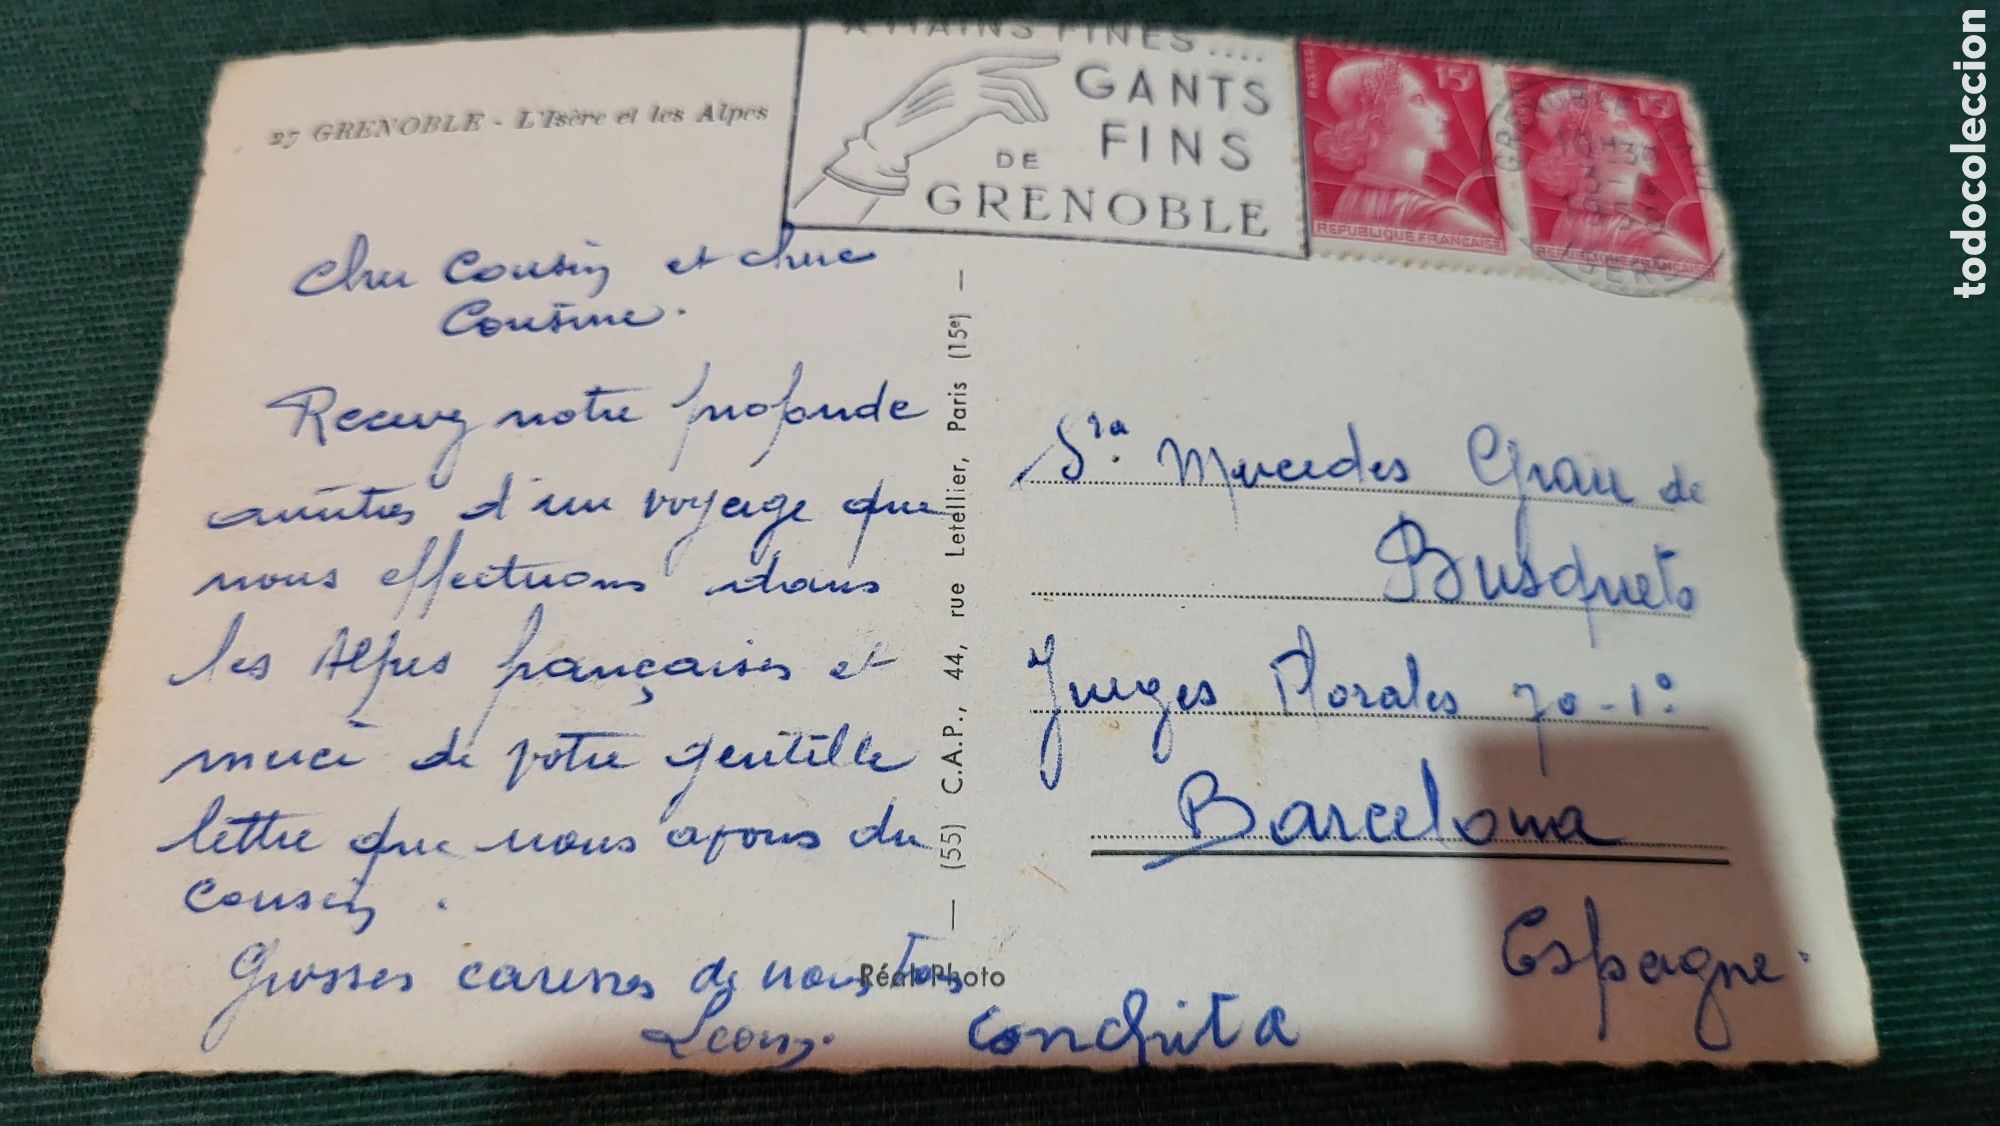 27 GRENOBLE - L'Isère et les Alpes
A MAINS FINES....
GANTS
FINS
DE
GRENOBLE
POSTES
15F
REPUBLIQUE FRANÇAISE
15F
REPUBLIQUE FRANÇAISE
GRENOBLE
1955
ISERE
Cher Cousin et chere
Cousine.
Recevez notre profonde
amitiés d'un voyage que
nous effectuons dans
les Alpes françaises et
merci de votre gentille
lettre que nous avons du
Cousin.
Grosses caresses de nous tous
Conchita
(55) C.A.P., 44, rue Letellier, Paris (15e)
Réal-Photo
Sra. Mercedes Grau de
Busquets
Jueges Florales 70-1º
Barcelona
Espagne.
todocoleccion